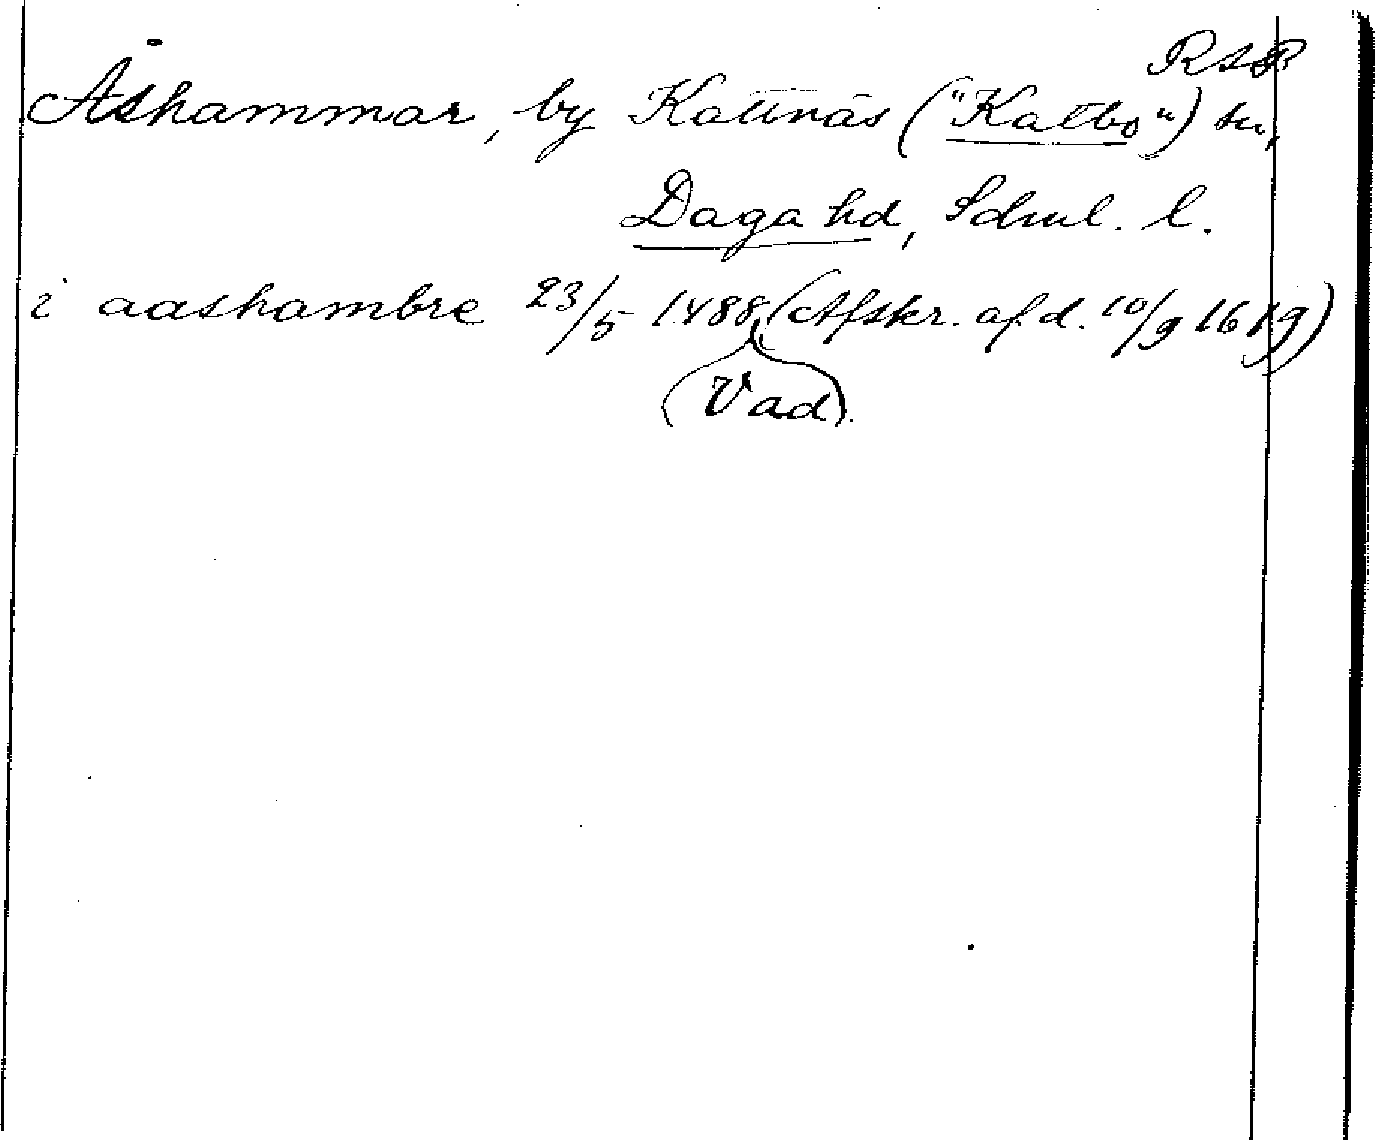 RAP
Åshammar, by Kattnäs ("Katbo") sn,
Daga hd, Sdml. l.
i aashambre 23/5 1488 (Afskr. af d. 10/9 1619)
(Vad).